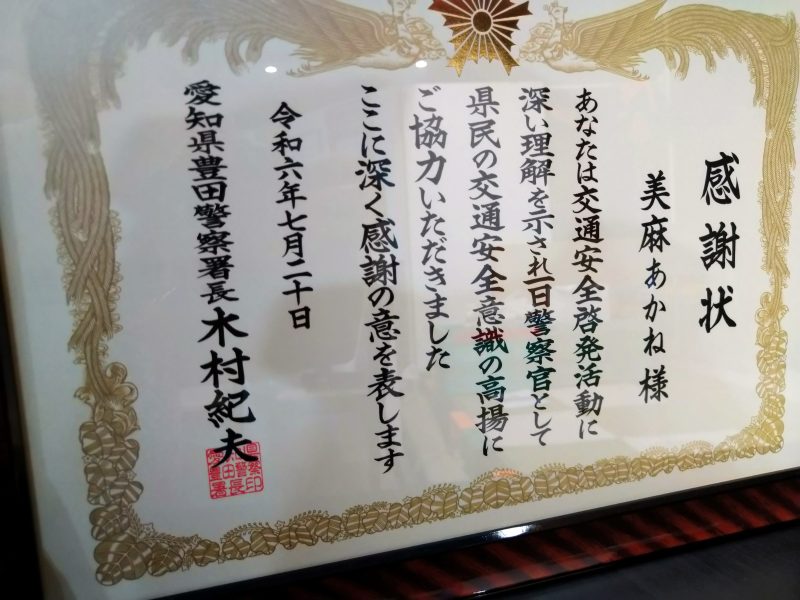 感謝状
美麻あかね様
あなたは交通安全啓発活動に
深い理解を示され一日警察官として
県民の交通安全意識の高揚に
ご協力いただきました
ここに深く感謝の意を表します
令和六年七月二十日
愛知県豊田警察署長木村紀夫